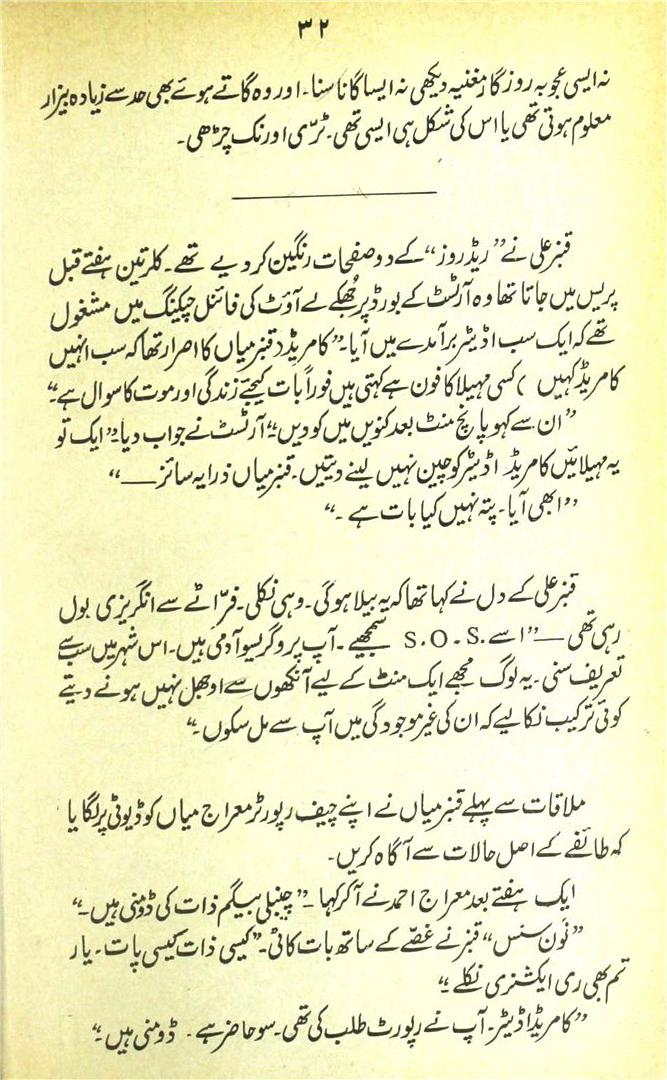 ۳۲
نہ ایسی عجوبہ روزگار مغنیہ دیکھی نہ ایسا گانا سنا۔ اور وہ گاتے ہوئے بھی حد سے زیادہ بیزار
معلوم ہوتی تھی یا اس کی شکل ہی ایسی تھی۔ ٹرّی اور نک چڑھی۔
قنبر علی نے ”ریڈ روز“ کے دو صفحات رنگین کر دیے تھے۔ کلر تین ہفتے قبل
پریس میں جاتا تھا وہ آرٹسٹ کے بورڈ پر جُھکے لے آؤٹ کی فائنل چیکنگ میں مشغول
تھے کہ ایک سب اڈیٹر برآمدے میں آیا۔ ”کامریڈ (قنبر میاں کا اصرار تھا کہ سب انہیں
کامریڈ کہیں) کسی مہیلا کا فون ہے کہتی ہیں فوراً بات کیجئے زندگی اور موت کا سوال ہے۔“
”ان سے کہو پانچ منٹ بعد کنویں میں کودیں۔“ آرٹسٹ نے جواب دیا۔ ”ایک تو
یہ مہیلائیں کامریڈ اڈیٹر کو چین نہیں لینے دیتیں۔ قنبر میاں ذرا یہ سائز ـــــ“
”ابھی آیا۔ پتہ نہیں کیا بات ہے۔“
قنبر علی کے دل نے کہا تھا کہ یہ بیلا ہوگی۔ وہی نکلی۔ فرّاٹے سے انگریزی بول
رہی تھی ـــــ ”اسے S.O.S. سمجھیے۔ آپ پروگریسو آدمی ہیں۔ اس شہر میں سب سے
تعریف سنی۔ یہ لوگ مجھے ایک منٹ کے لیے آنکھوں سے اوجھل نہیں ہونے دیتے
کوئی ترکیب نکالیے کہ ان کی غیر موجودگی میں آپ سے مل سکوں۔“
ملاقات سے پہلے قنبر میاں نے اپنے چیف رپورٹر معراج میاں کو ڈیوٹی پر لگایا
کہ طائفے کے اصل حالات سے آگاہ کریں۔
ایک ہفتے بعد معراج احمد نے آ کر کہا۔ ”چنبیلی بیگم ذات کی ڈومنی ہیں۔“
”نون سنس“ قنبر نے غصّے کے ساتھ بات کاٹی۔ ”کیسی ذات کیسی پات۔ یار
تم بھی ری ایکشنری نکلے۔“
”کامریڈ اڈیٹر۔ آپ نے رپورٹ طلب کی تھی۔ سو حاضر ہے۔ ڈومنی ہیں۔“